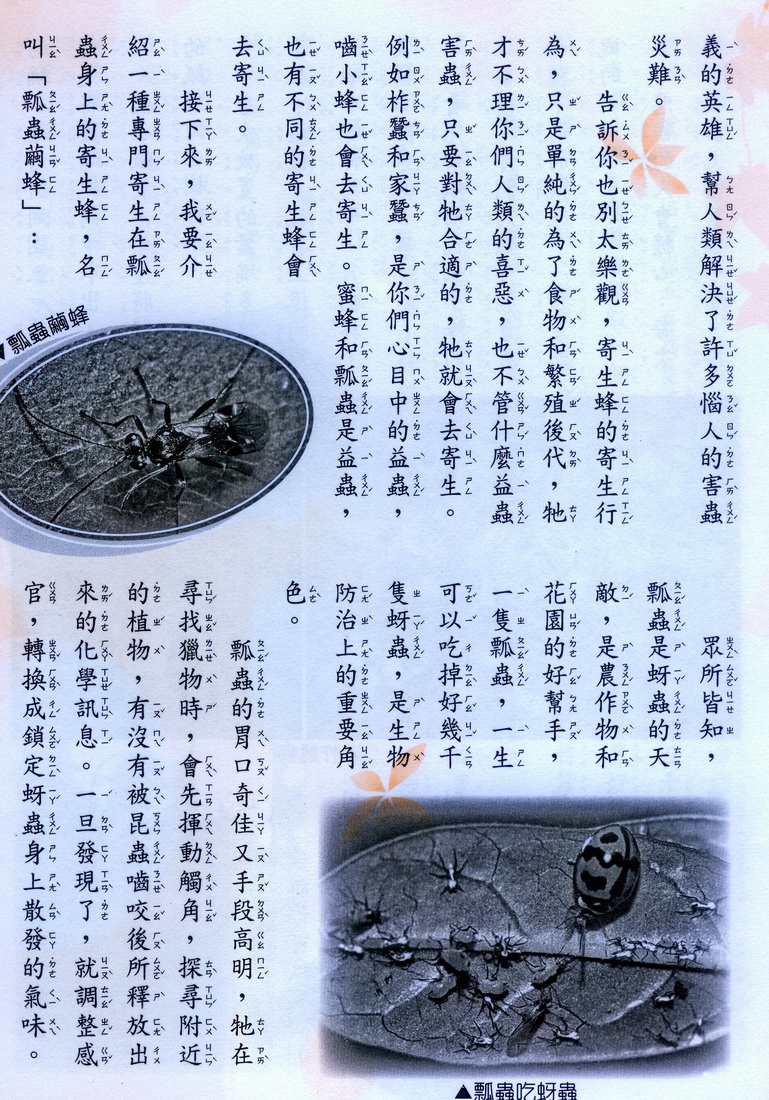 義的英雄，幫人類解決了許多惱人的害蟲
災難。
告訴你也別太樂觀，寄生蜂的寄生行
為，只是單純的為了食物和繁殖後代，牠
才不理你們人類的喜惡，也不管什麼益蟲
害蟲，只要對牠合適的，牠就會去寄生。
例如柞蠶和家蠶，是你們心目中的益蟲，
嚙小蜂也會去寄生。蜜蜂和瓢蟲是益蟲，
也有不同的寄生蜂會
去寄生。
接下來，我要介
紹一種專門寄生在瓢
蟲身上的寄生蜂，名
叫「瓢蟲繭蜂」：
▼瓢蟲繭蜂
眾所皆知，
瓢蟲是蚜蟲的天
敵，是農作物和
花園的好幫手，
一隻瓢蟲，一生
可以吃掉好幾千
隻蚜蟲，是生物
防治上的重要角
色。
瓢蟲的胃口奇佳又手段高明，牠在
尋找獵物時，會先揮動觸角，探尋附近
的植物，有沒有被昆蟲嚙咬後所釋放出
來的化學訊息。一旦發現了，就調整感
官，轉換成鎖定蚜蟲身上散發的氣味。
▲瓢蟲吃蚜蟲